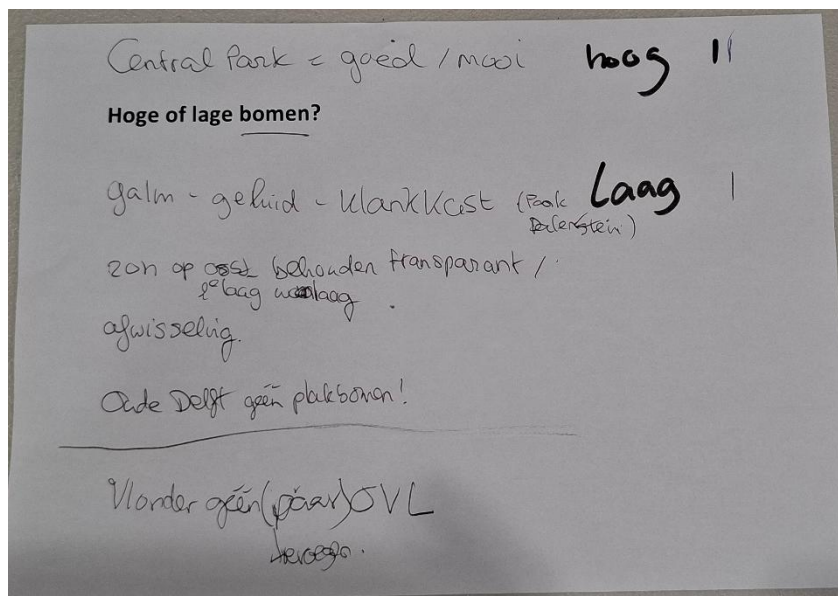 Central Park = goed / mooi hoog II
Hoge of lage bomen?
galm - geluid - klankkast (Park Laag I
Dalenstein)
zon op oost behouden transparant /
1e laag laag
afwisseling.
Oude Delft géén plakbomen!
Vlonder géén (paar) OVL